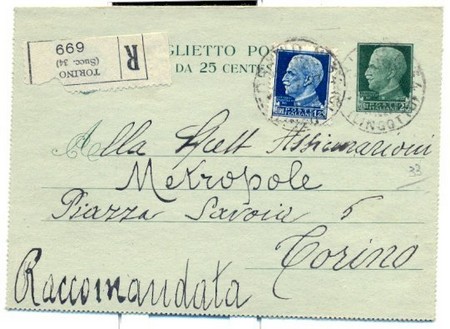 R
TORINO
(Succ. 34)
669
GLIETTO PO
DA 25 CENTE
LINGOTTO
Alla Spett Assicurazioni
Metropole
33
Piazza Savoia 5
Torino
Raccomandata